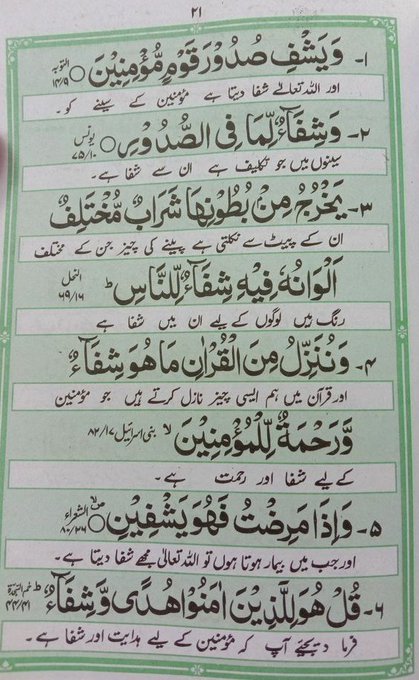 ۲۱
۱- وَيَشْفِ صُدُوْرَ قَوْمٍ مُّؤْمِنِيْنَ ○ التوبہ ۱۴/۹
اور اللہ تعالےٰ شفا دیتا ہے مؤمنین کے سینے کو۔
۲- وَشِفَآءٌ لِّمَا فِى الصُّدُوْرِ ○ یونس ۷۵/۱۰
سینوں میں جو تکلیف ہے ان سے شفا ہے۔
۳- يَخْرُجُ مِنْۢ بُطُوْنِهَا شَرَابٌ مُّخْتَلِفٌ
ان کے پیٹ سے نکلتی ہے پینے کی چیز جن کے مختلف
اَلْوَانُهٗ فِيْهِ شِفَآءٌ لِّلنَّاسِ ؕ النحل ۶۹/۱۶
رنگ ہیں لوگوں کے لیے ان میں شفا ہے
۴- وَنُنَزِّلُ مِنَ الْقُرْاٰنِ مَا هُوَ شِفَآءٌ
اور قرآن میں ہم ایسی چیز نازل کرتے ہیں جو مؤمنین
وَّرَحْمَةٌ لِّلْمُؤْمِنِيْنَ ۙ بنی اسرائیل ۸۲/۱۷
کے لیے شفا اور رحمت ہے۔
۵- وَاِذَا مَرِضْتُ فَهُوَ يَشْفِيْنِ ○ الشعراء ۸۰/۲۶
اور جب میں بیمار ہوتا ہوں تو اللہ تعالیٰ مجھے شفا دیتا ہے۔
۶- قُلْ هُوَ لِلَّذِيْنَ اٰمَنُوْا هُدًى وَّشِفَآءٌ ؕ حٰم السجدۃ ۴۴/۴۱
فرما دیجیئے آپ کہ مؤمنین کے لیے ہدایت اور شفا ہے۔